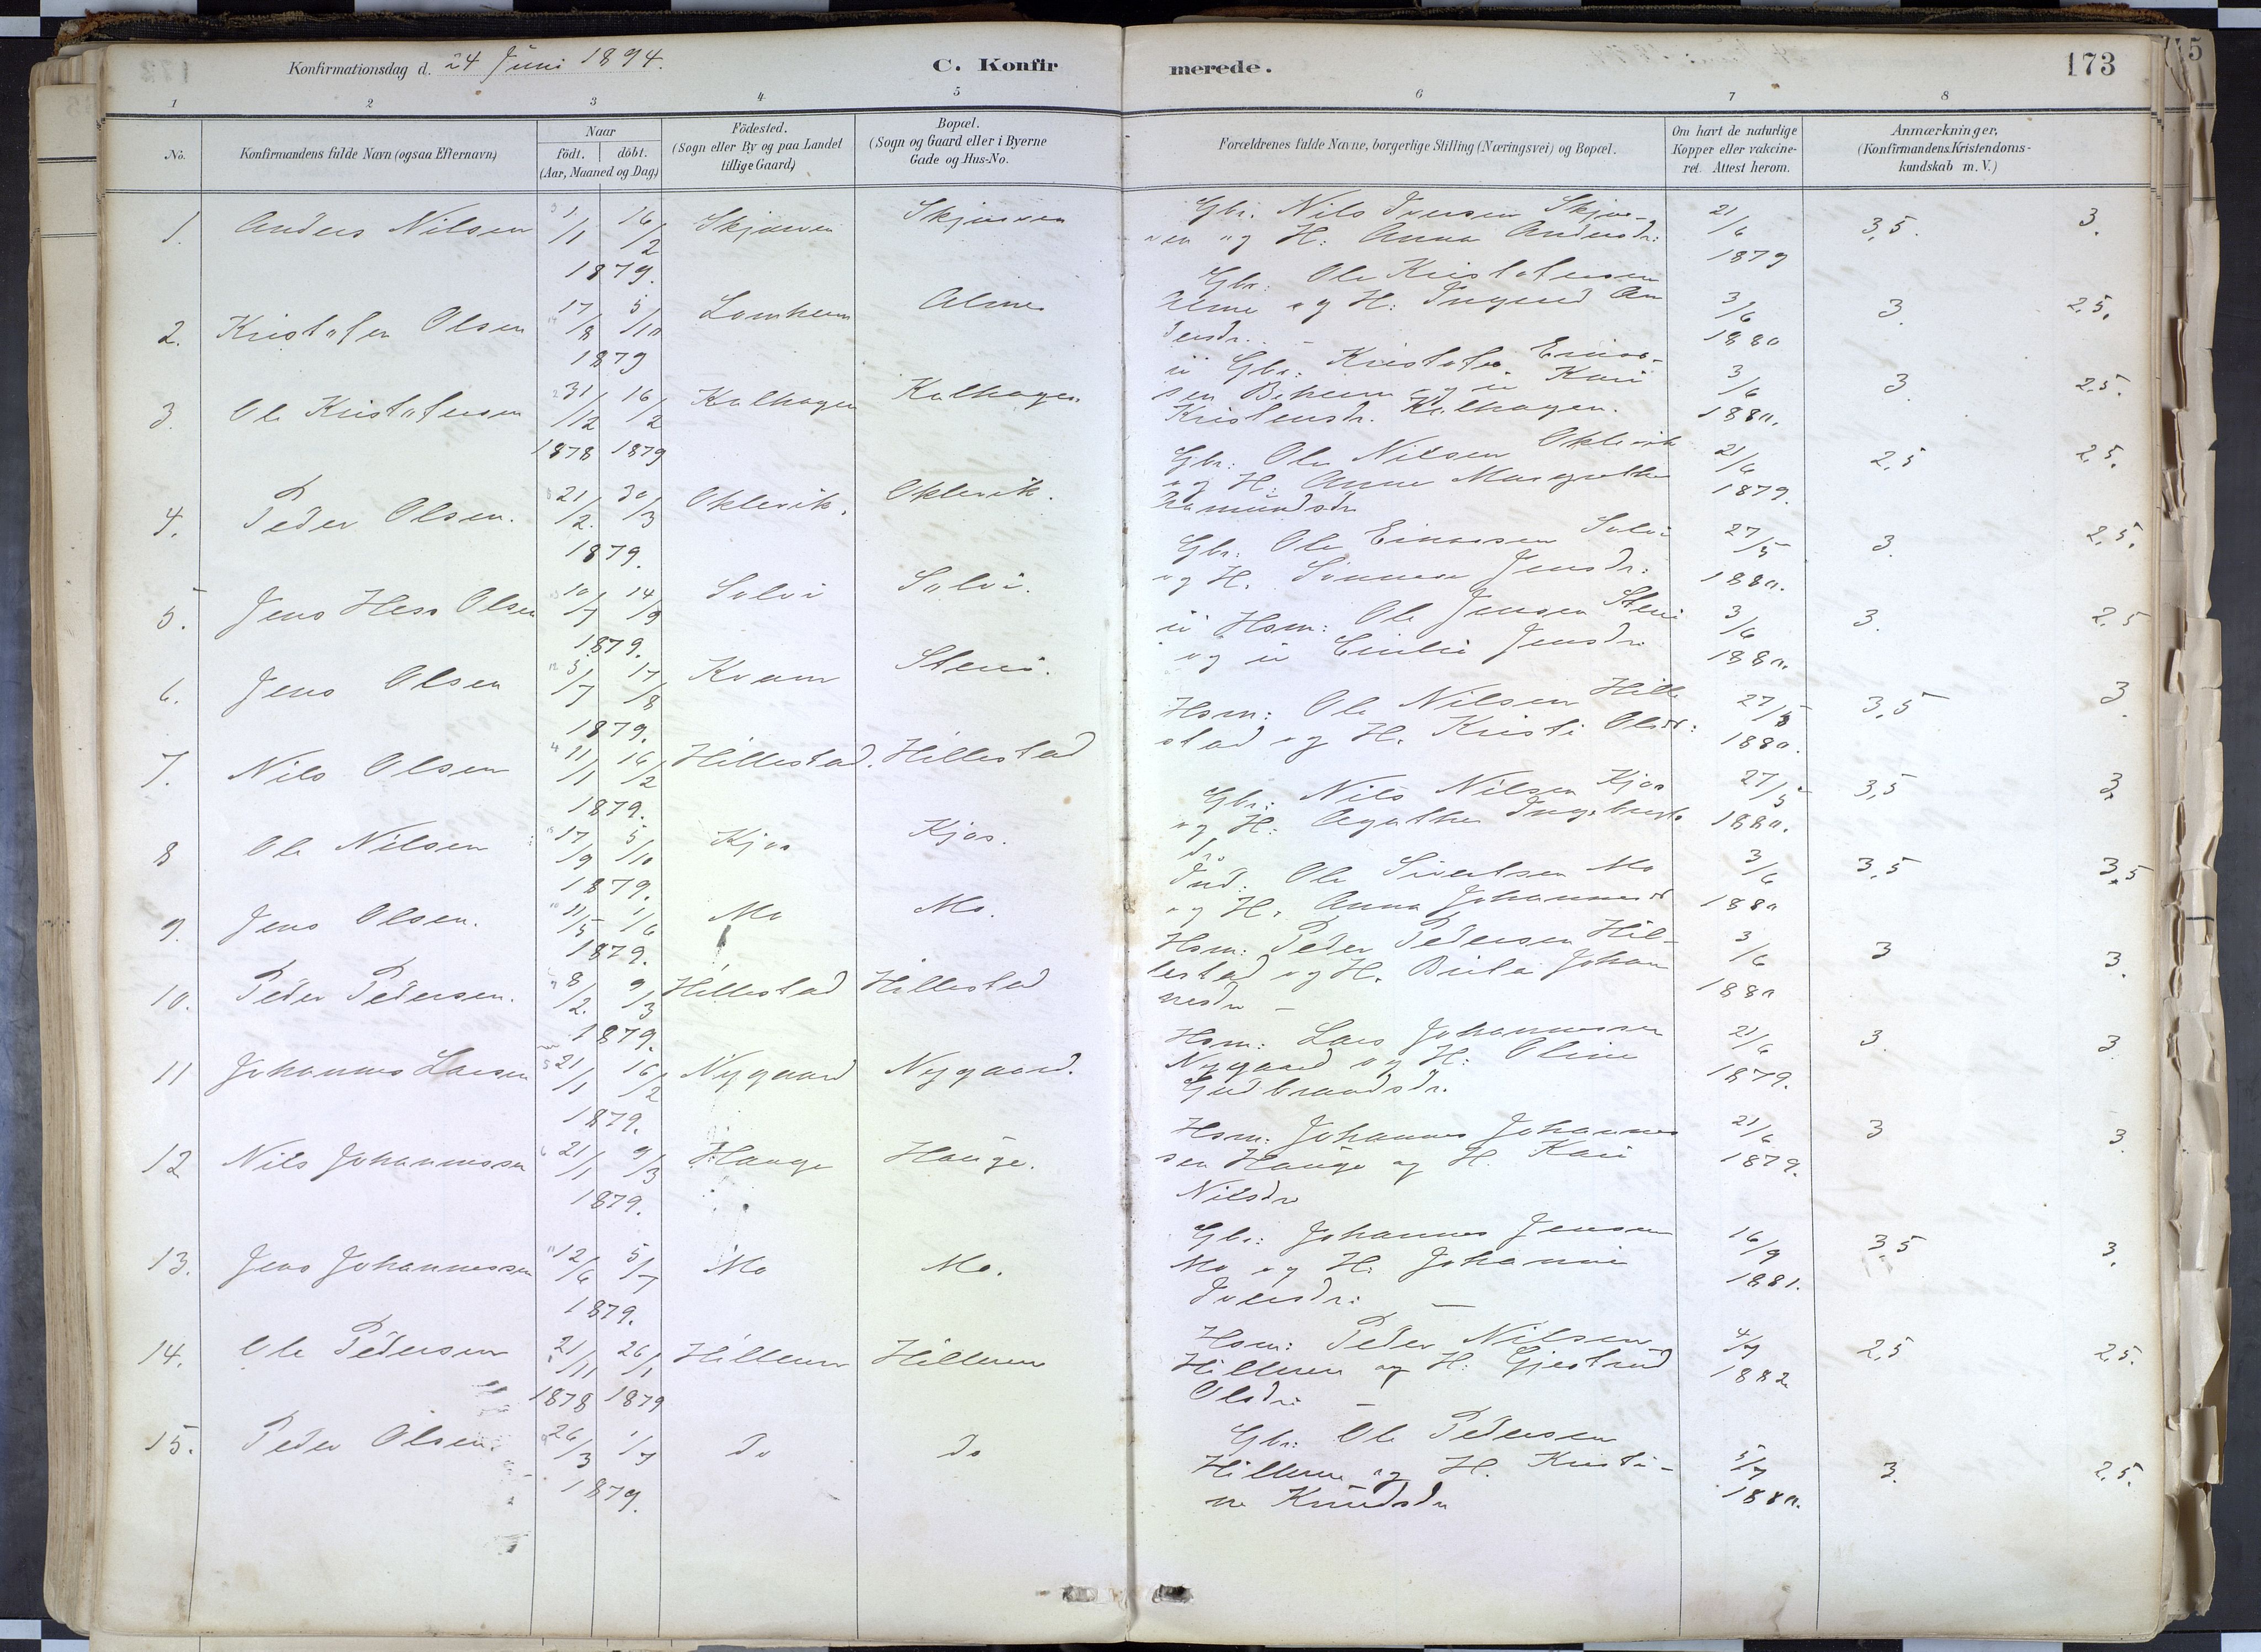 Konfirmationsdag d. 24 Juni 1894.
C. Konfirmerede.
173
1 2 3 4 5 6 7 8
No.
Konfirmandens fulde Navn (ogsaa Efternavn)
Naar
födt. döbt.
(Aar, Maaned og Dag)
Födested.
(Sogn eller By og paa Landet
tillige Gaard)
Bopæl.
(Sogn og Gaard eller i Byerne
Gade og Hus-No.
Forældrenes fulde Navne, borgerlige Stilling (Næringsvei) og Bopæl.
Om havt de naturlige
Kopper eller vakcine-
ret. Attest herom.
Anmærkninger,
(Konfirmandens Kristendoms-
kundskab m. V.)
1. Anders Nilsen 16/2 1879. Skjerven Skjerven
Gbr. Nils Iversen Skjer-
ven og H: Anna Andersdr:
21/6 1879 3,5. 3.
2. Kristofer Olsen 17/8 5/10 1879 Lomheim Alme
Gbr: Ole Kristofersen
Alme og H: Ingerid An
dersdr.
3/6 1880 3. 2,5.
3. Ole Kristofersen 31/12 1878 16/2 1879 Kalhagen Kalhagen
u Gbr: Kristofer
sen og u Kari
Kristensdr. Kalhagen.
3/6 1880. 3. 2,5.
4. Peder Olsen. 21/2. 30/3 1879. Oklevik. Oklevik.
Gbr: Ole Nilsen Oklevik
og H: Anne Margrethe
Ramundsdr
21/6 1879. 2,5 2,5.
5. Jens Hess Olsen 10/7 14/9 1879. Solvi Solvi.
Gbr: Ole Einarsen Solvi
og H. Sunneva Jensdr:
27/5 1880. 3. 2,5.
6. Jens Olsen 5/7 17/8 1879. Kvam Steni.
u Hsm: Ole Jensen Steni
og u Emilie Jensdr:
3/6 1880. 3. 2,5
7. Nils Olsen 11/1 16/2 1879. Hillestad. Hillestad
Hsm: Ole Nilsen Hille
stad og H. Kristi Olsdr:
27/5 1880. 3,5 3.
8 Ole Nilsen 17/9 5/10 1879. Kjos Kjos.
Gbr: Nils Nilsen Kjos
og H: Agathe Ingebrets
dr.
27/5 1880. 3,5 3.
9. Jens Olsen. 11/5 1/6 1879. Mo Mo.
Ind: Ole Sivertsen Mo
og H. Anna Johannesdr
3/6 1880 3,5 3,5
10. Peder Pedersen. 8/2. 9/3 1879. Hillestad Hillestad
Hsm: Peder Pedersen Hil-
lestad og H. Brita Johan
nesdr
3/6 1880 3 3.
11 Johannes Larsen 21/1 16/2 1879. Nygaard Nygaard.
Hsm: Lars Johannessen
Nygaard og H: Oline
Gudbrandsdr.
21/6 1879. 3. 3.
12 Nils Johannessen 21/1 9/3 1879. Hauge Hauge.
Hsm. Johannes Johannes
sen Hauge og H. Kari
Nilsdr
21/6 1879. 3 3.
13. Jens Johannessen 12/6 5/7 1879. Mo Mo.
Gbr: Johannes Jensen
Mo og H: Johanne
Iversdr:
16/9 1881. 3,5 3.
14. Ole Pedersen 21/11 1878 26/1 1879 Hilleren Hilleren
Hsm: Peder Nilsen
Hilleren og H: Gjertrud
Olsdr:
4/7 1882 2,5 2,5.
15. Peder Olsen. 26/3 1/7 1879. do do
Gbr: Ole Pedersen
Hilleren og H. Kristi-
ne Knudsdr
5/7 1880. 3. 2,5.